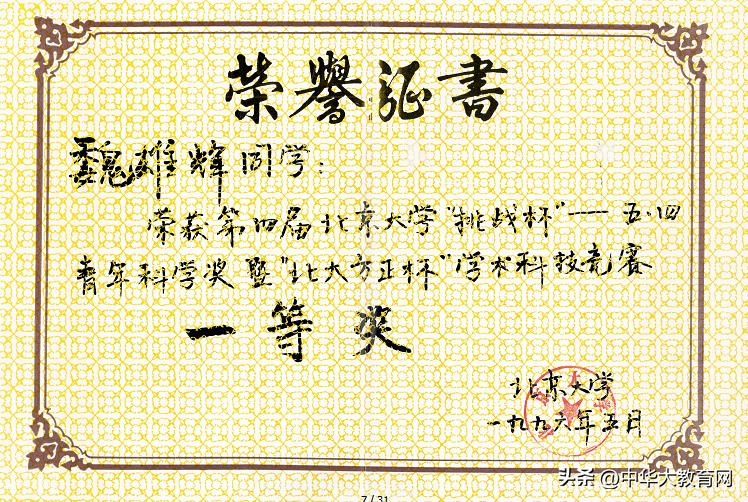 荣誉证书
魏雄辉同学：
荣获第四届北京大学"挑战杯"——五·四
青年科学奖暨"北大方正杯"学术科技竞赛
一等奖
北京大学
一九九六年五月
头条 @中华大教育网
7 / 31